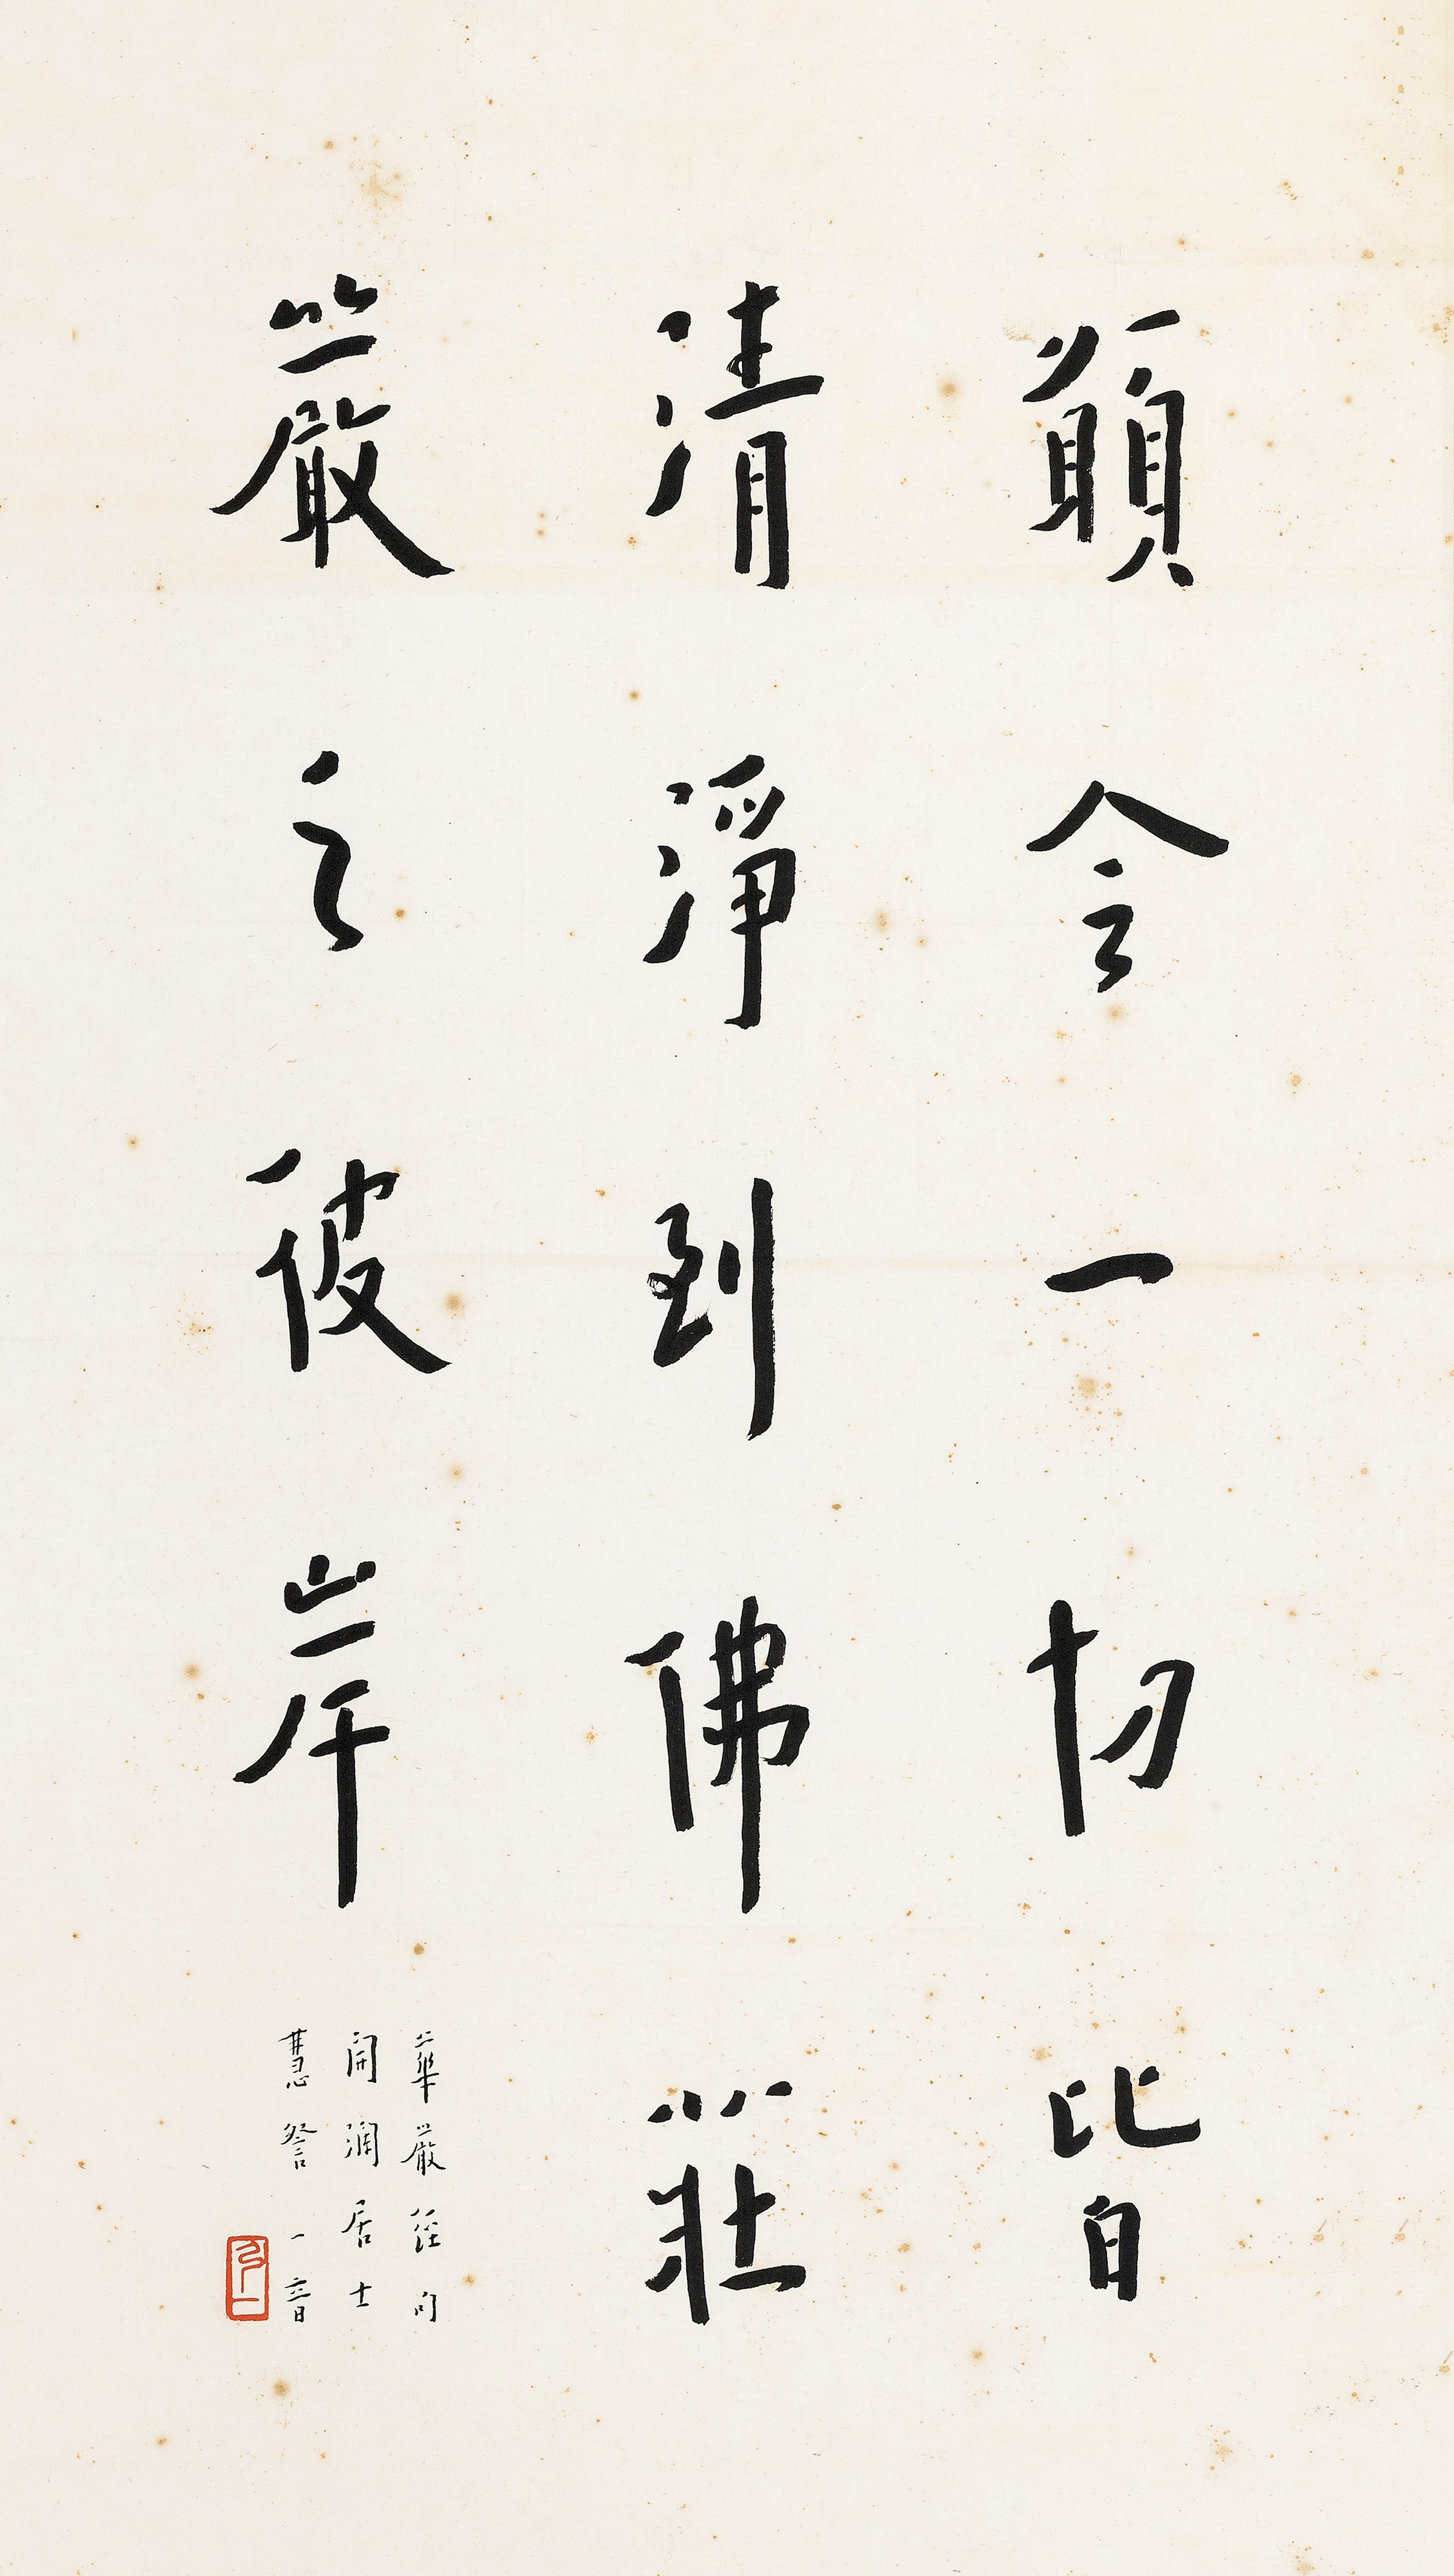 願令一切皆
清淨到佛莊
嚴之彼岸
華嚴經句
開瀾居士
慧詧一音